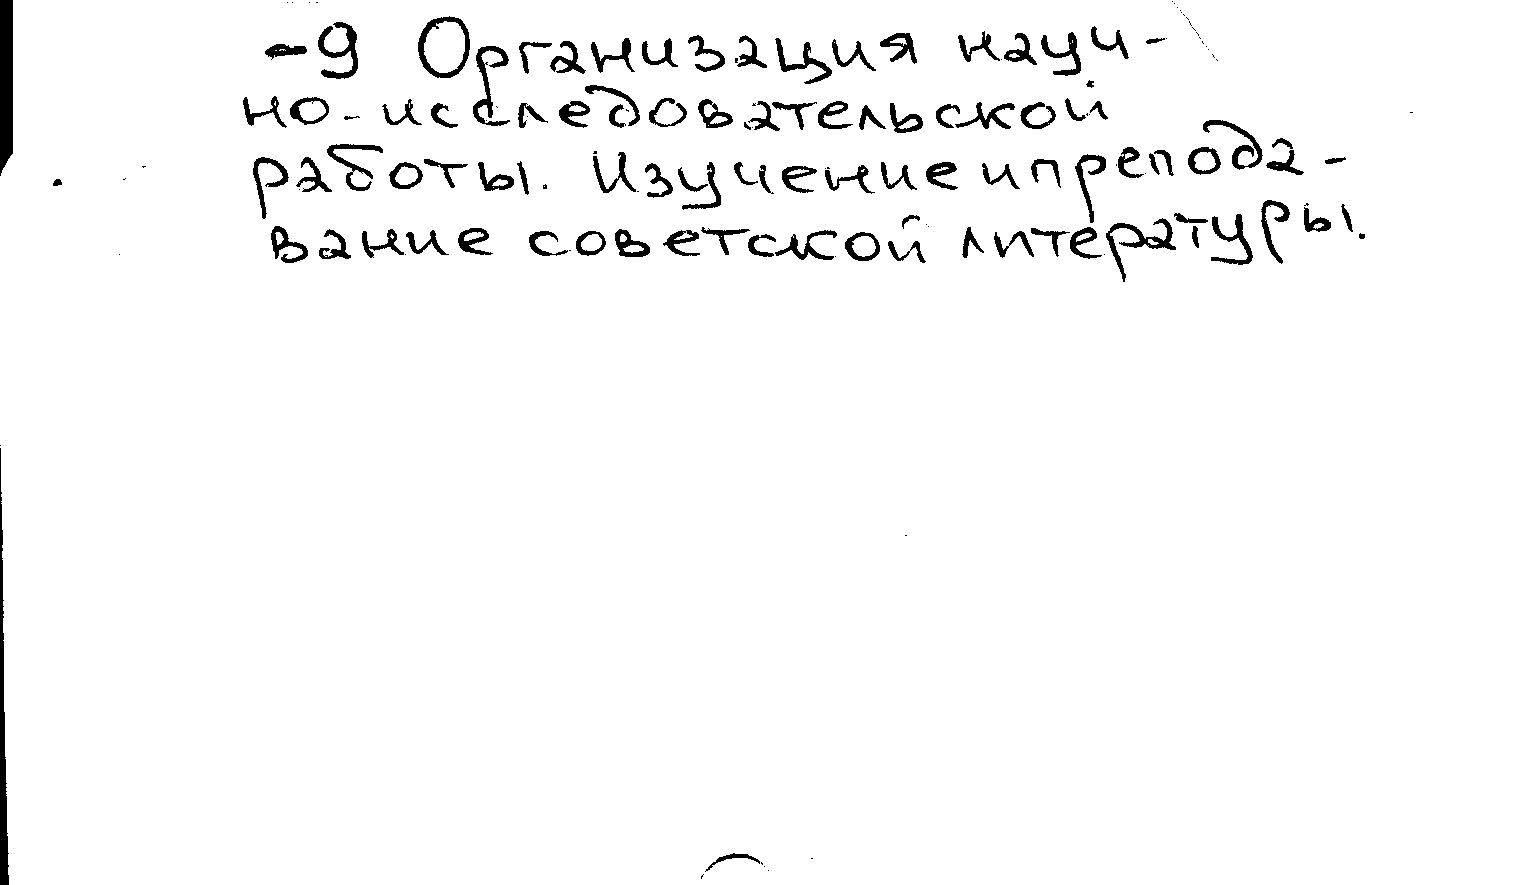 -9 Организация науч-
но-исследовательской
работы. Изучение и препода-
вание советской литературы.